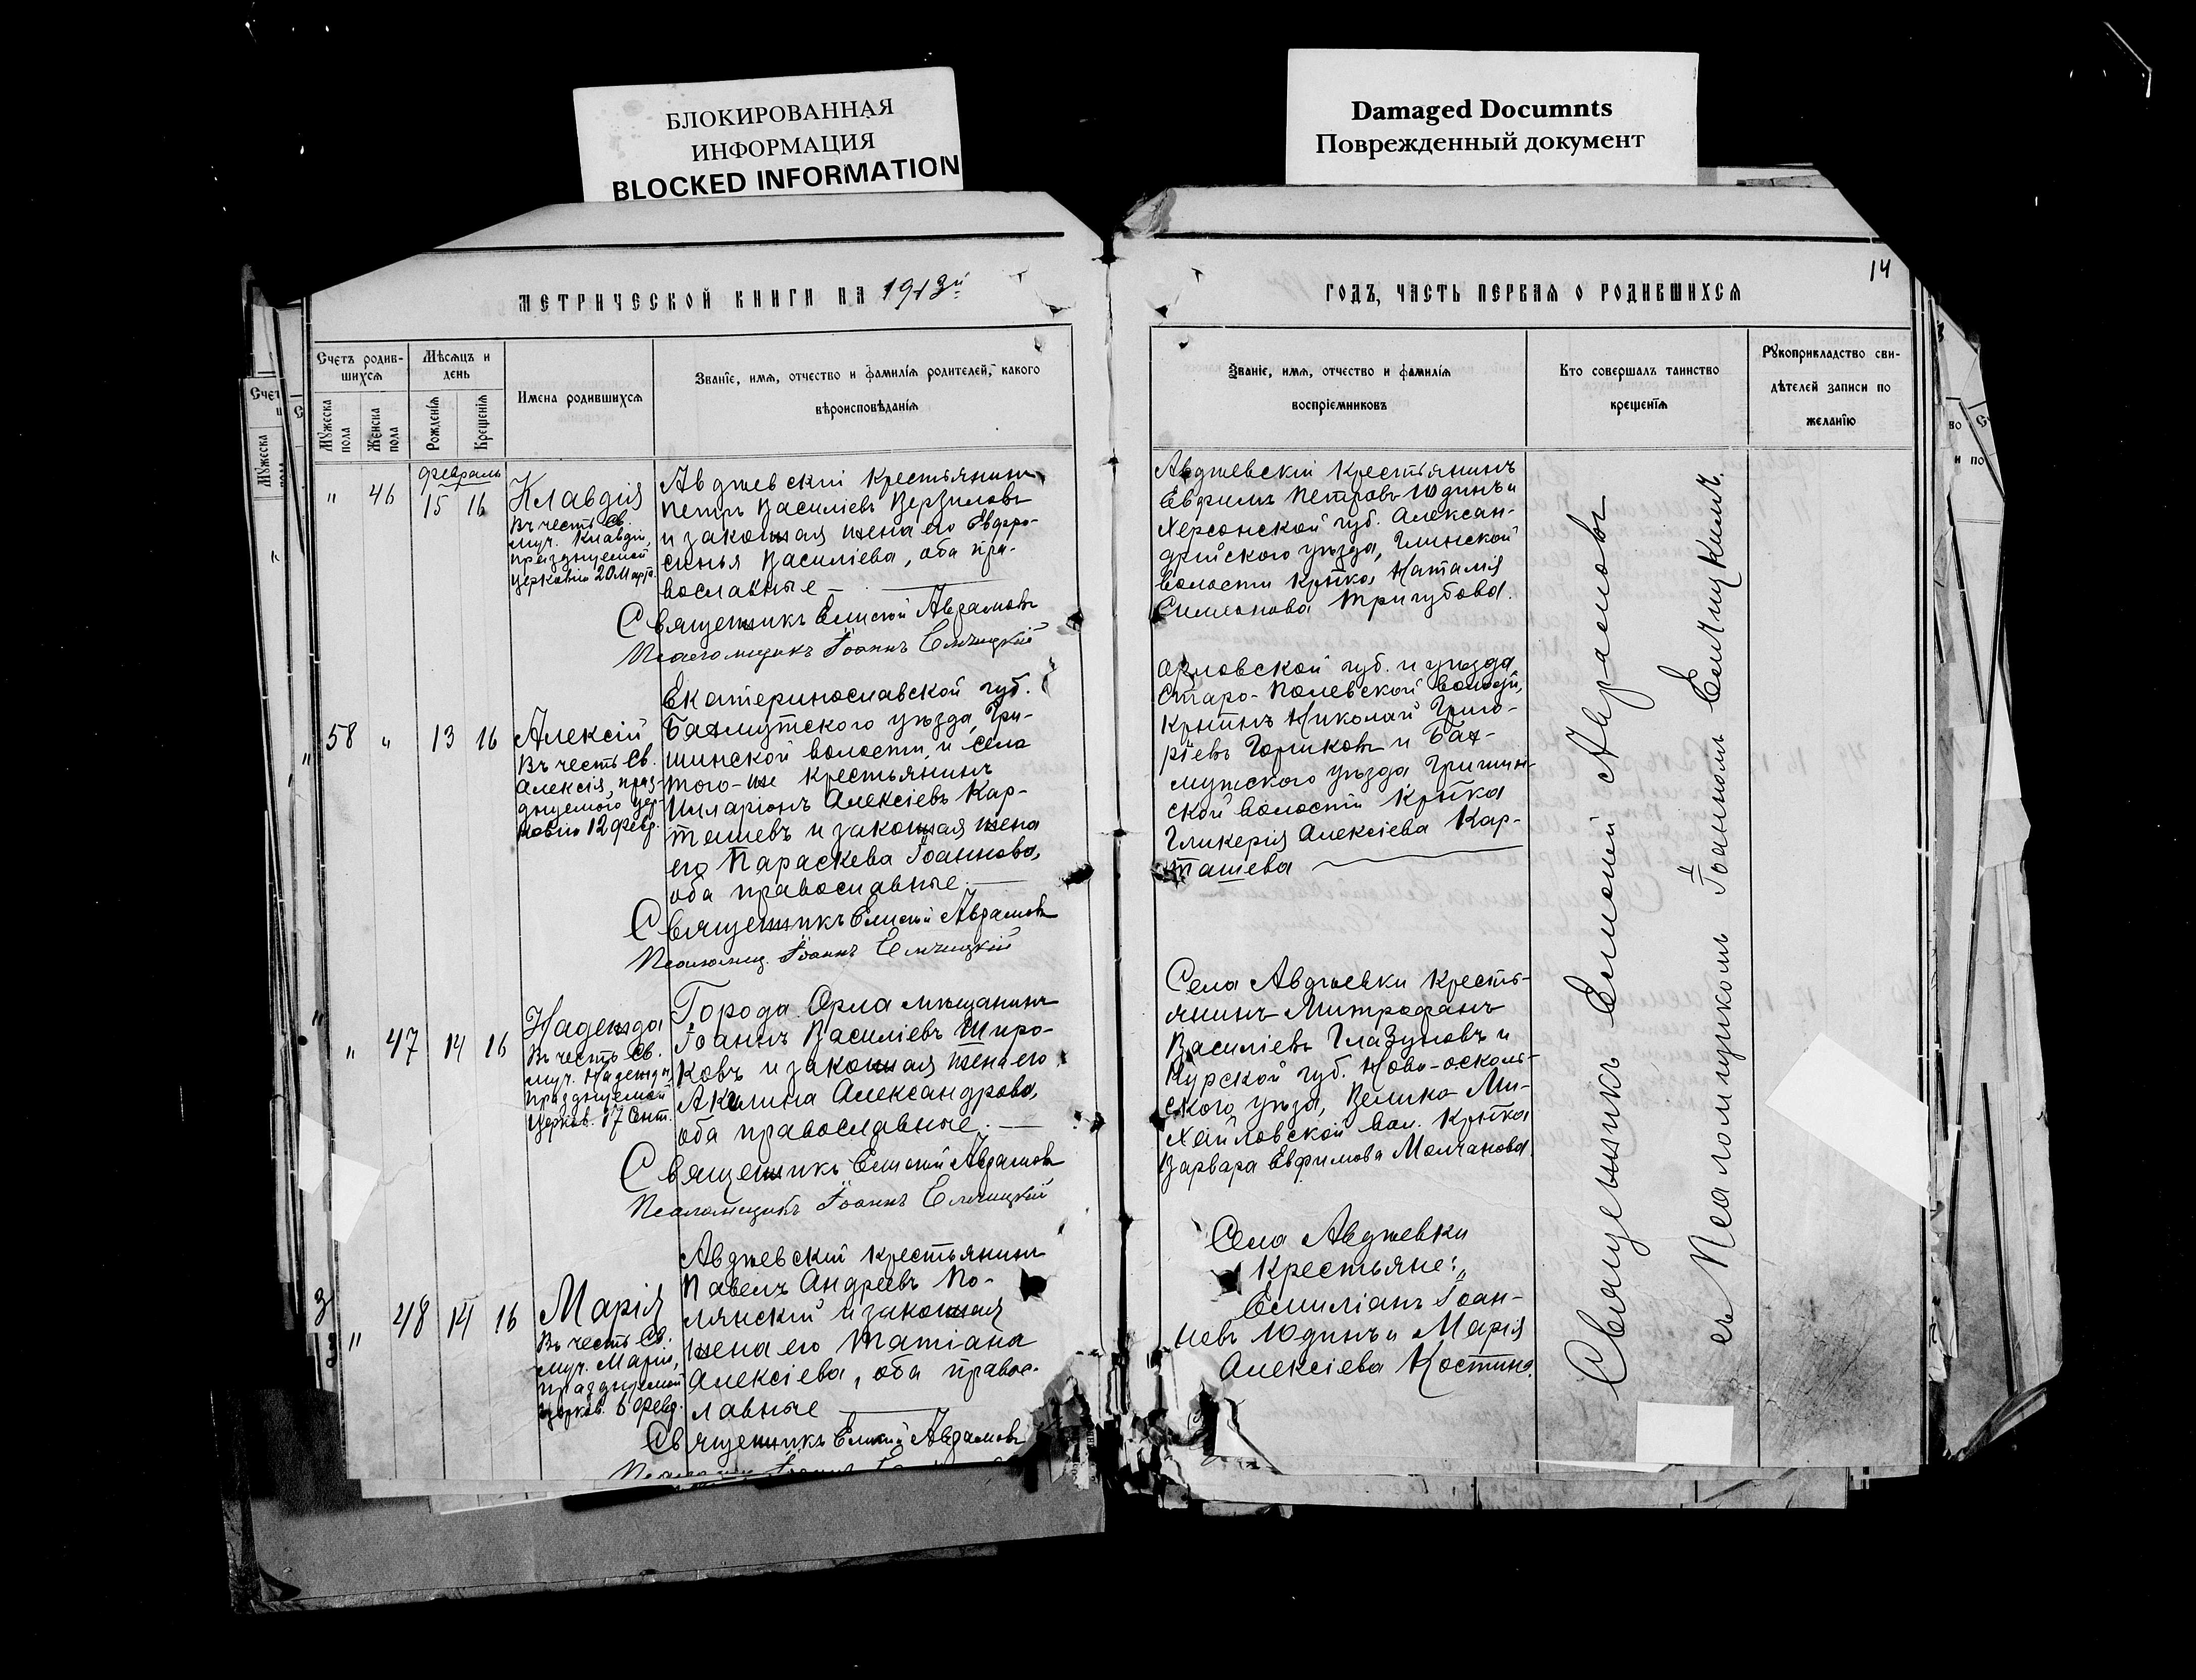 БЛОКИРОВАННАЯ
ИНФОРМАЦИЯ
BLOCKED INFORMATION
Damaged Documnts
Поврежденный документ
14
МЕТРИЧЕСКОЙ КНИГИ НА 1913й
ГОДЪ, ЧАСТЬ ПЕРВАЯ О РОДИВШИХСЯ
Счетъ родив-
шихся
Мужеска
пола
Женска
пола
Мѣсяцъ и
день
Рожденія
Крещенія
Имена родившихся
Званіе, имя, отчество и фамилія родителей, какого
вѣроисповѣданія
Званіе, имя, отчество и фамилія
воспріемниковъ
Кто совершалъ таинство
крещенія
Рукоприкладство сви-
дѣтелей записи по
желанію
февраль
" 46 15 16
Клавдія
Въ честь Св.
муч. Клавдіи,
празднуемой
церковію 20 Марта.
Авдѣевскій крестьянинъ
Петръ Василіевъ Верзиловъ
и законная жена его Евфро-
синья Василіева, оба пра-
вославные
Священникъ Елисей Авраамовъ
Псаломщикъ Іоаннъ Елчицкій
Авдѣевскій крестьянинъ
Евфимъ Петровъ Юдинъ и
Херсонской губ. Алексан-
дрійского уѣзда, Глинской
волости кр‑ка Наталія
Симеонова Тригубова.
58 " 13 16
Алексій
Въ честь Св.
Алексія, праз-
днуемого цер-
ковію 12 февр.
Екатеринославской губ.
Бахмутского уѣзда, Гри-
шинской волости и села
того-же крестьянинъ
Илларіонъ Алексіевъ Кар-
ташевъ и законная жена
его Параскева Іоаннова,
оба православные.
Священникъ Елисей Авраамовъ
Псаломщ. Іоаннъ Елчицкій
Орловской губ. и уѣзда
Старо-Полевской волости,
кр‑нинъ Николай Григо-
ріевъ Горшковъ и Бах-
мутского уѣзда Гришин-
ской волости кр‑нка
Гликерія Алексіева Кар-
ташева
" 47 14 16
Надежда
Въ честь Св.
муч. Надежды
празднуемой
церков. 17 Сент.
Города Орла мѣщанинъ
Іоаннъ Василіевъ Широ-
ковъ и законная жена его
Акилина Александрова,
оба православные.
Священникъ Елисей Авраамовъ
Псаломщикъ Іоаннъ Елчицкій
Села Авдѣевки кресть-
янинъ Митрофанъ
Василіевъ Глазуновъ и
Курской губ. Ново-осколь-
ского уѣзда, Велико-Ми-
хайловской вол. кр‑нка
Варвара Евфимова Молчанова.
" 48 14 16
Марія
Въ честь Св.
муч. Маріи,
празднуемой
церков. 6 февр.
Авдѣевскій крестьянинъ
Павелъ Андреевъ По-
лянскій и законная
жена его Татіана
Алексіева, оба правос-
лавные
Священникъ Елисей Авраамовъ
Села Авдѣевки
крестьяне:
Емиліанъ Іоан-
новъ Юдинъ и Марія
Алексіева Костина.
Священникъ Елисей Авраамовъ
съ Псаломщикомъ Іоанномъ Елчицкимъ.